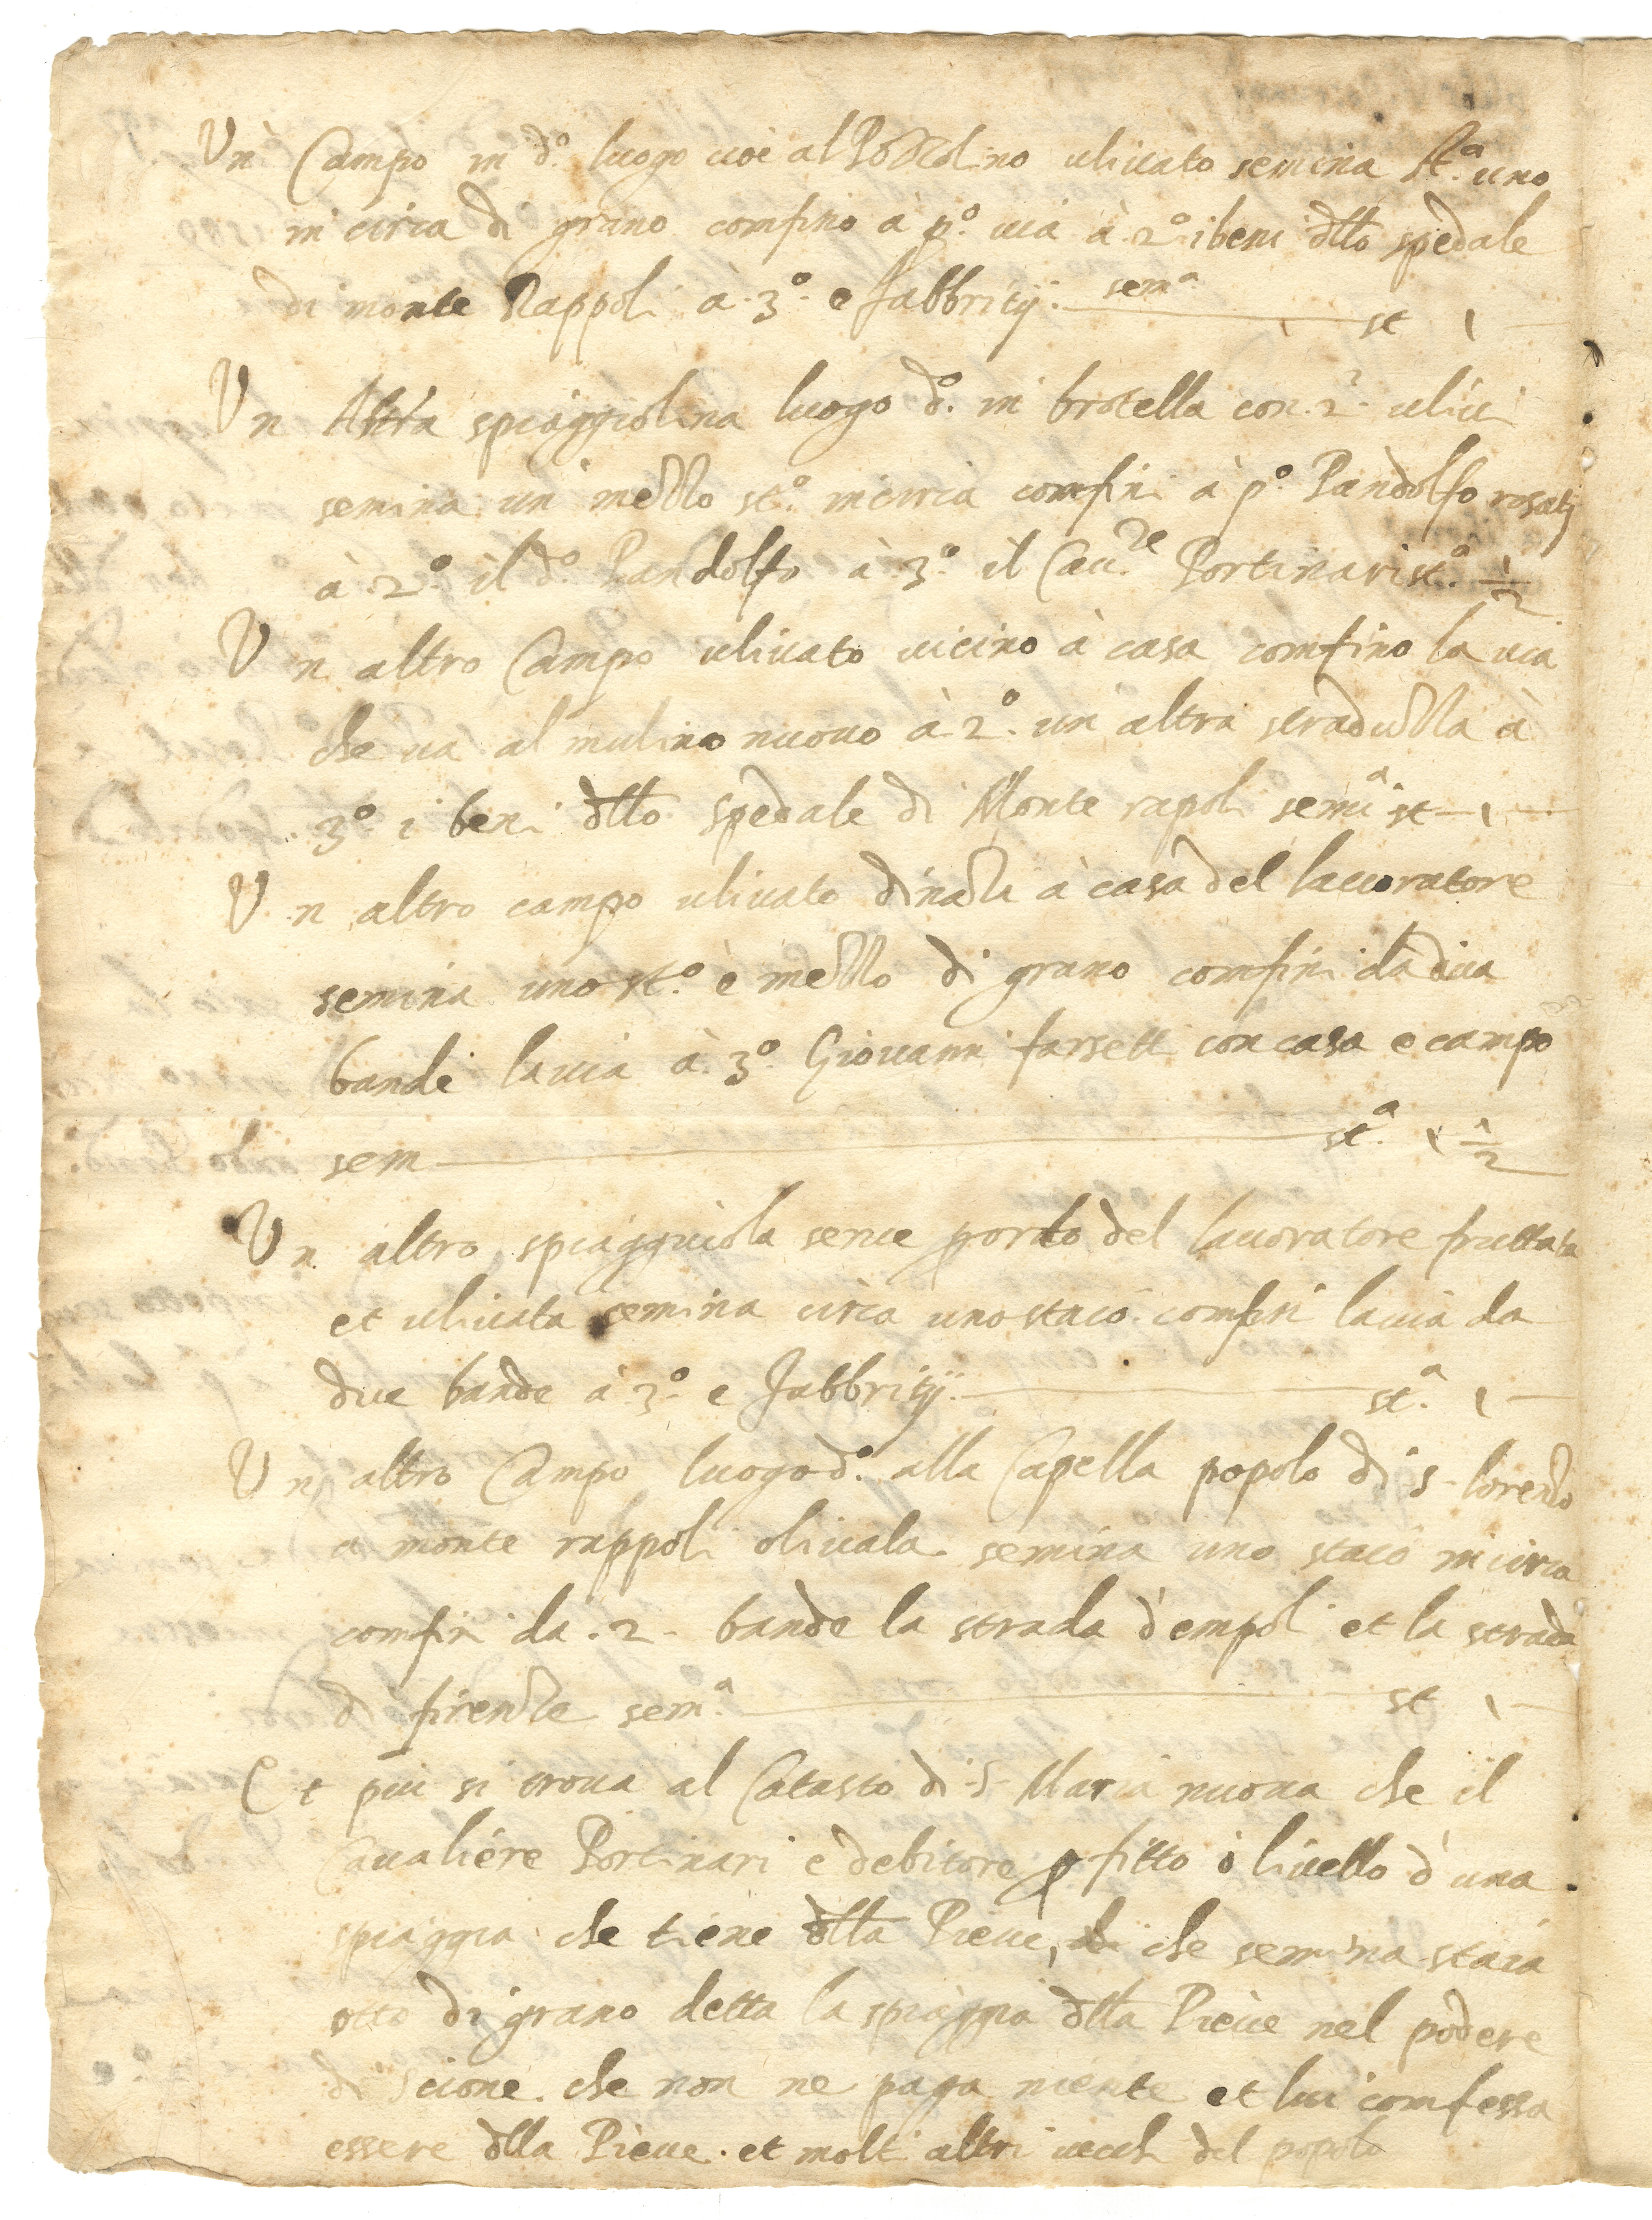 Un Campo in d.º luogo cioè al Pozzolino ulivato semina st.ª uno
in circa di grano confino à p.º via à 2.º i beni dllo spedale
di monte Rappoli à 3.º e fabbritij. sem.ª st 1
Un Altra spiaggiolina luogo d.º in brotella con .2. ulivi
semina un mezzo st.º in circa confini à p.º Pandolfo rosatj
à .2.º il d.º Pandolfo à 3.º il Cau.re Portinari st.º 1/2
Un altro Campo ulivato vicino à casa confino la via
che va al mulino nuovo à 2.º un altra straduzza à
3.º i beni dllo spedale di Monte rapoli sem.ª st 1
Un altro campo ulivato dinazi à casa del lavoratore
semina uno st.º e mezzo di grano confini da dua
bande la via à 3.º Giovanni farsetti con casa e campo
sem st.ª 1 1/2
Un altro spiagguiola serve p orto del lavoratore fruttata
et ulivata semina circa uno staio confini la via da
due bande à 3.º e fabbritij. st.ª 1
Un altro Campo luogo d.º alla Capella popolo di S. lorenzo
a monte rappoli olivata semina uno staio in circa
confini da .2. bande la strada d'empoli et la strada
di firenze sem.ª st 1
Et piu si trova al Catasto di S. Maria nuova che il
Cavaliere Portinari è debitore p fitto ò livello d'una
spiaggia che tiene dlla Pieve, che semina staia
otto di grano detta la spiaggia dlla Pieve nel podere
di Scione. che non ne paga niente et lui confessa
essere dlla Pieve. et molti altri vecchi del popolo